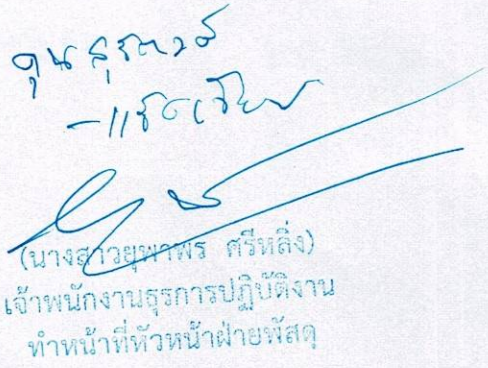 คุณสุรางค์
- แจ้งเวียน
(นางสาวยุพาพร ศรีหลิ่ง)
เจ้าพนักงานธุรการปฏิบัติงาน
ทำหน้าที่หัวหน้าฝ่ายพัสดุ